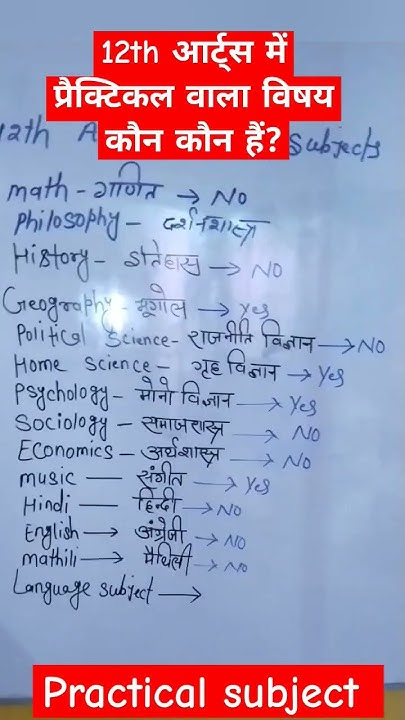 12th आर्ट्स में
प्रैक्टिकल वाला विषय
कौन कौन हैं?
12th A Subjects
math - गणित → No
Philosophy - दर्शनशास्त्र
History - इतिहास → NO
Geography - भूगोल → Yes
Political Science - राजनीति विज्ञान → NO
Home Science - गृह विज्ञान → Yes
Psychology - मोनो विज्ञान → Yes
Sociology - समाजशास्त्र → NO
Economics - अर्थशास्त्र → NO
music — संगीत → Yes
Hindi — हिन्दी → NO
English → अंग्रेजी → NO
mathili — मैथिली → NO
Language subject →
Practical subject